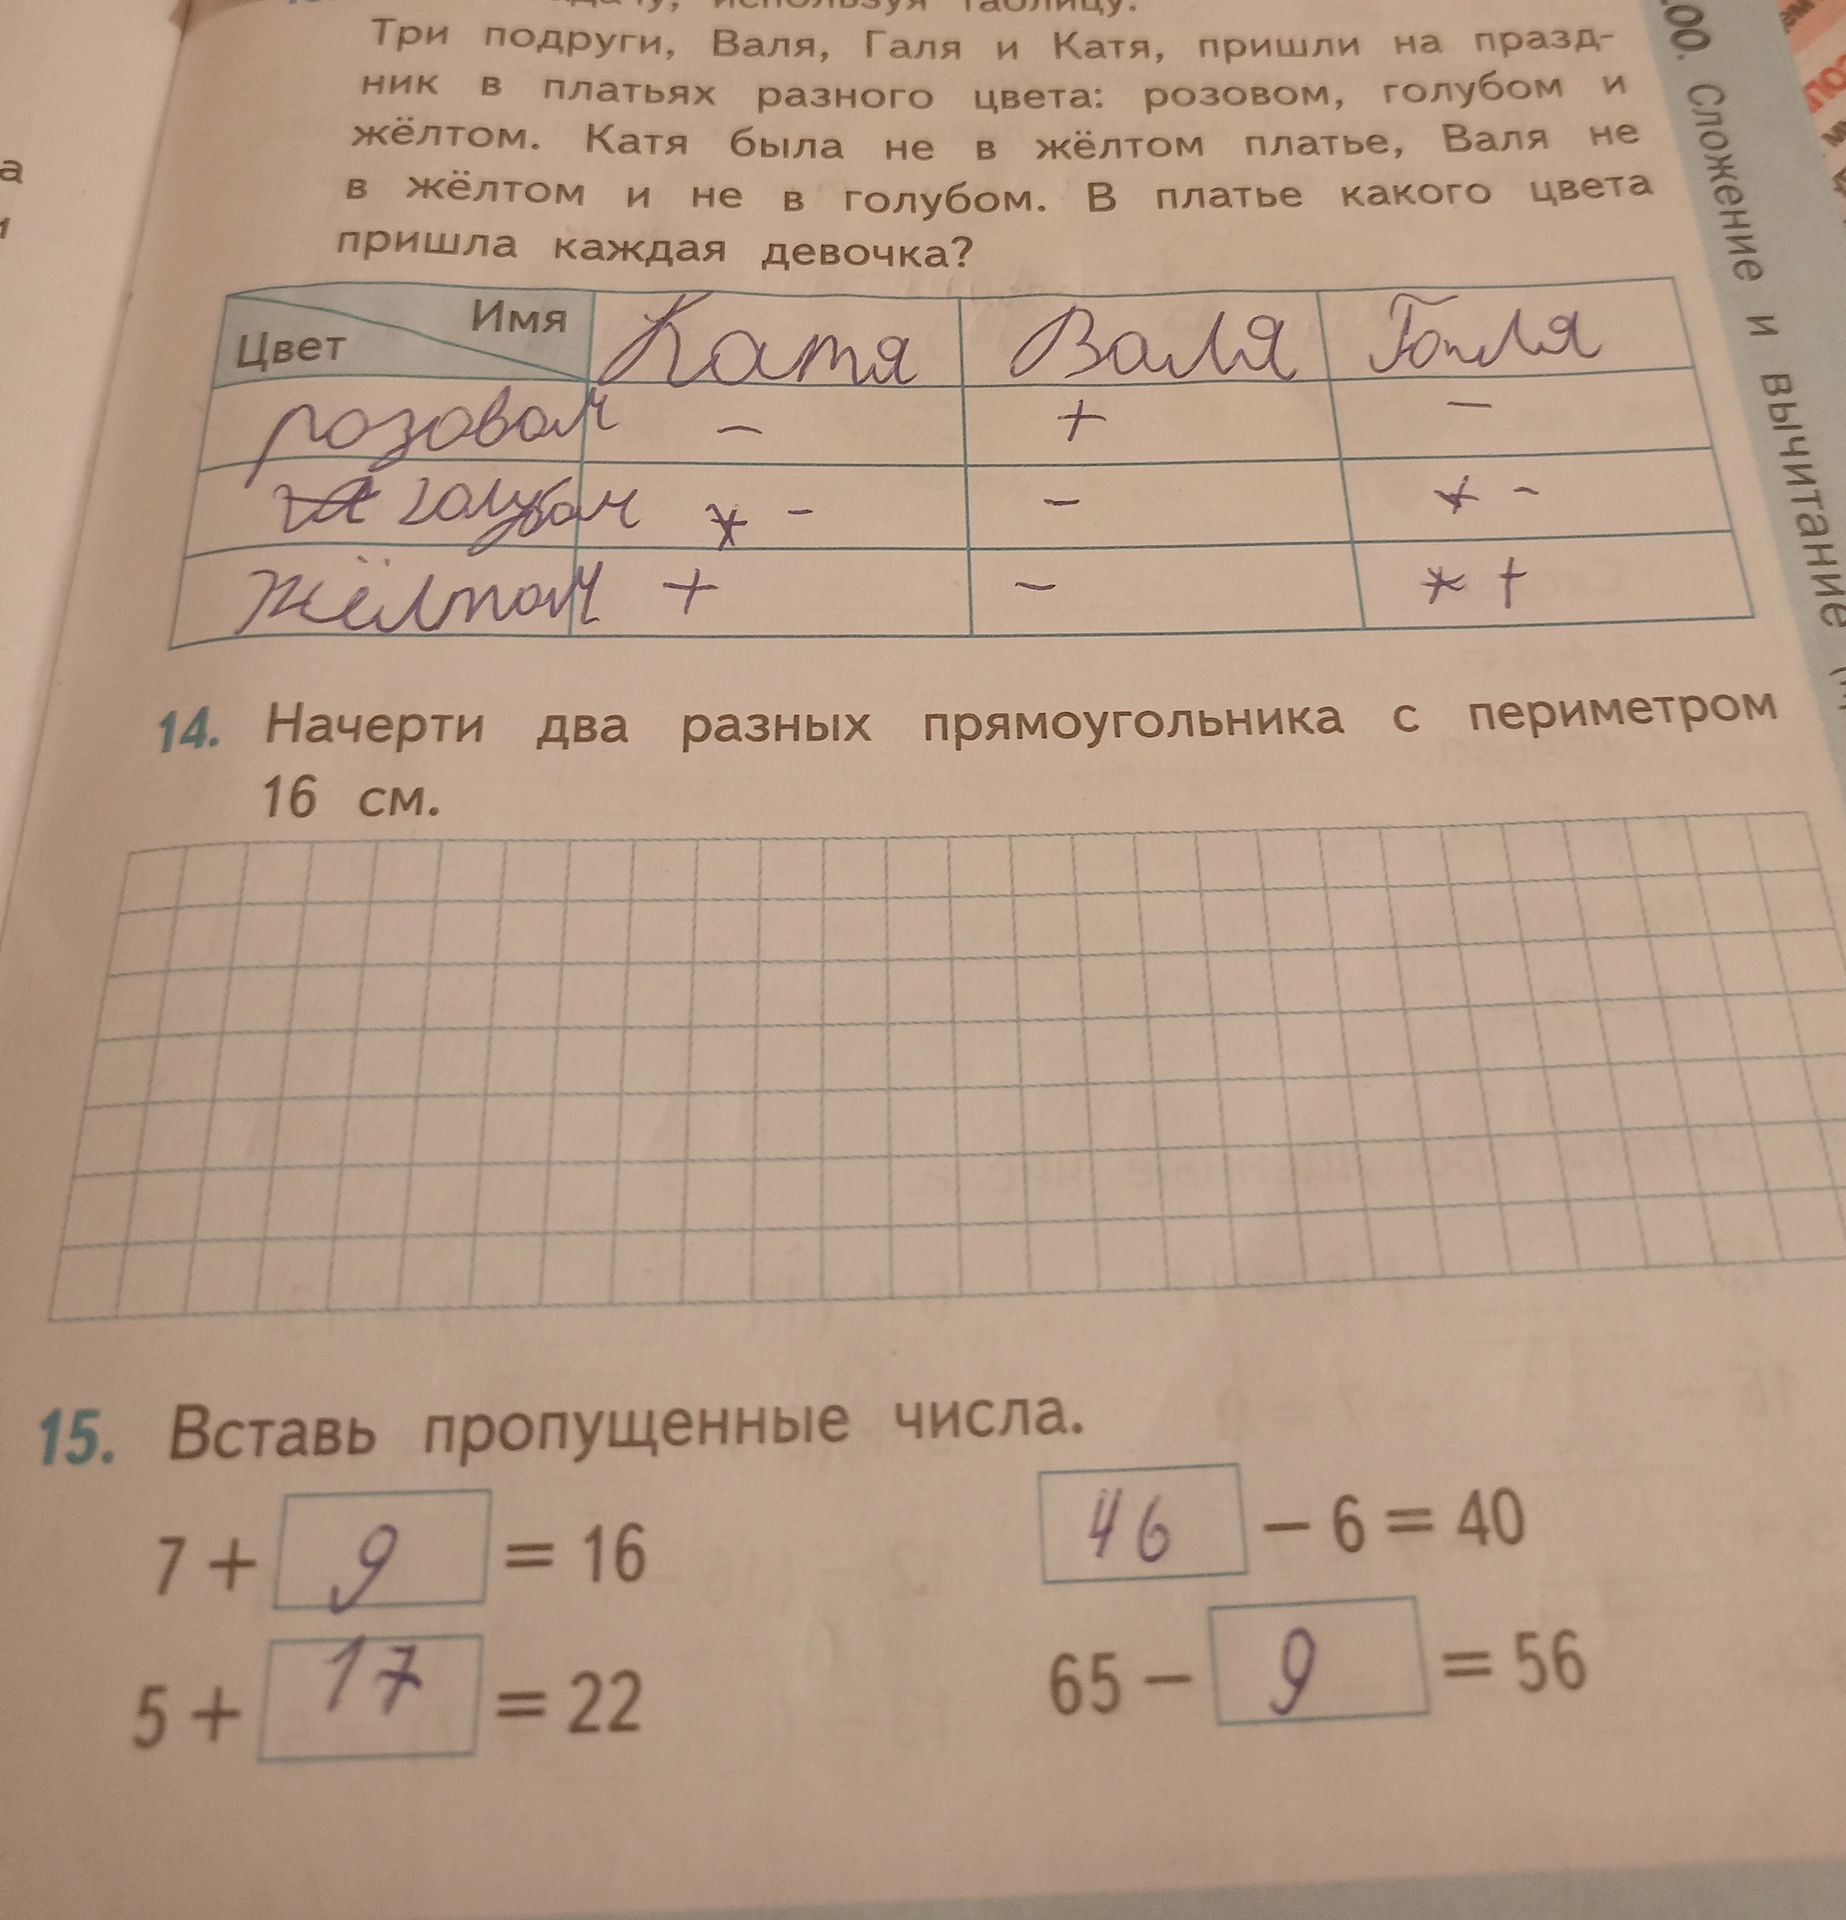 используя таблицу.
Три подруги, Валя, Галя и Катя, пришли на празд-
ник в платьях разного цвета: розовом, голубом и
жёлтом. Катя была не в жёлтом платье, Валя не
в жёлтом и не в голубом. В платье какого цвета
пришла каждая девочка?
Цвет Имя Катя Валя Галя
розовом - + -
голубом - - -
жёлтом + - +
14. Начерти два разных прямоугольника с периметром
16 см.
15. Вставь пропущенные числа.
7 + 9 = 16 46 - 6 = 40
5 + 17 = 22 65 - 9 = 56
00. Сложение и вычитание
а